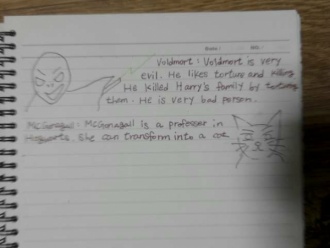 Date : No. :
Voldmort : Voldmort is very
evil. He likes torture and killing
He killed Harry's family by torturing
them. He is very bad person.
McGonagall : McGonagall is a professor in
Hogwarts. She can transform into a cat